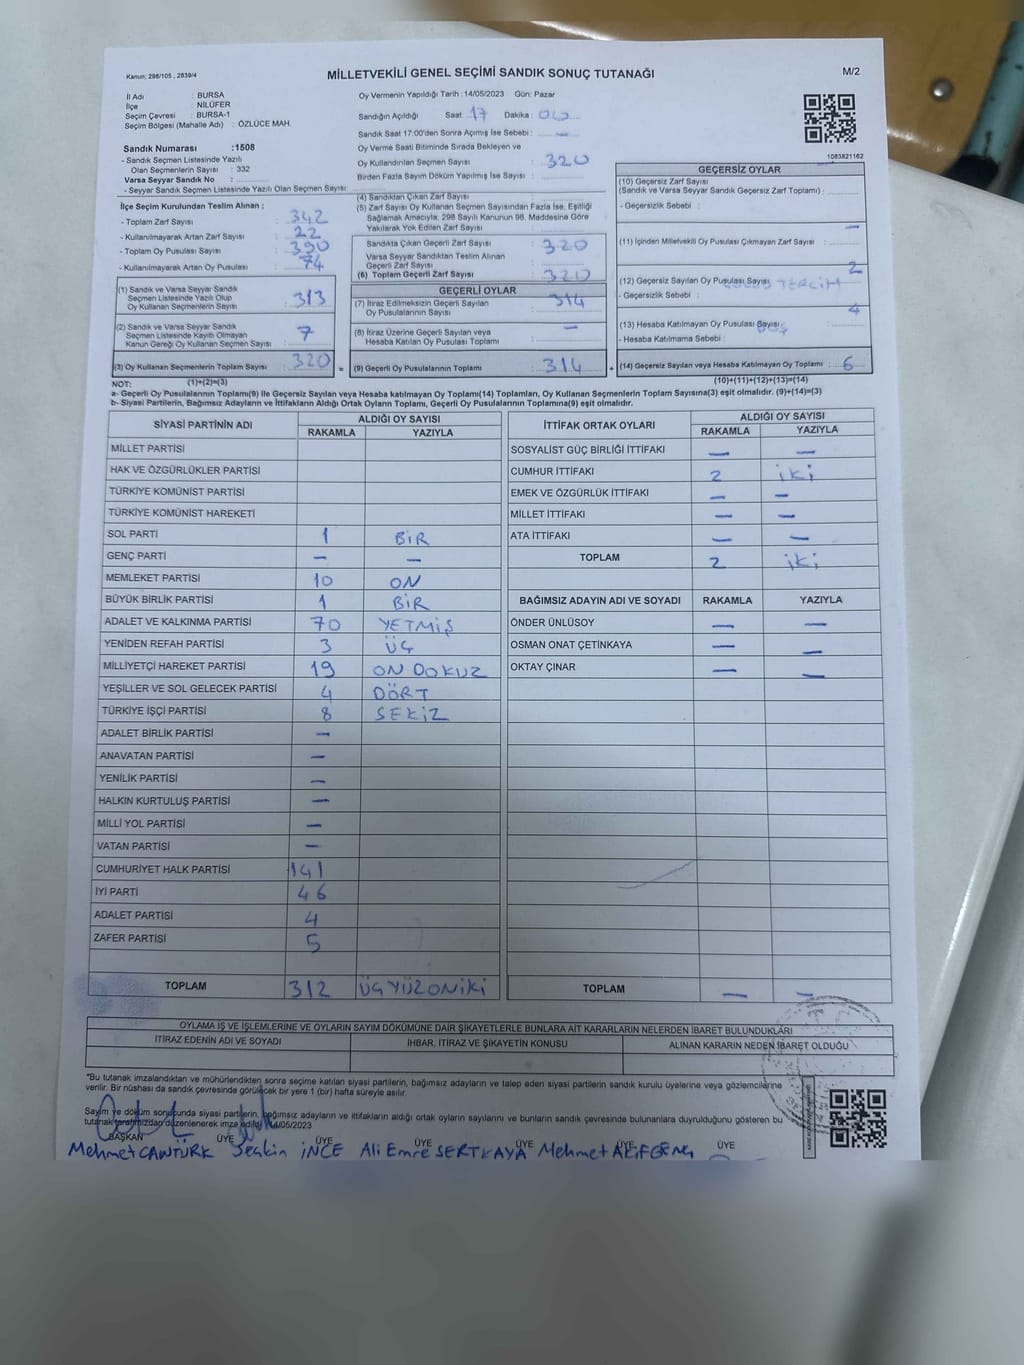 Kanun: 298/105 , 2839/4
MİLLETVEKİLİ GENEL SEÇİMİ SANDIK SONUÇ TUTANAĞI
M/2
İl Adı : BURSA
İlçe : NİLÜFER
Seçim Çevresi : BURSA-1
Seçim Bölgesi (Mahalle Adı) : ÖZLÜCE MAH.
Sandık Numarası :1508
- Sandık Seçmen Listesinde Yazılı
Olan Seçmenlerin Sayısı : 332
Varsa Seyyar Sandık No :
- Seyyar Sandık Seçmen Listesinde Yazılı Olan Seçmen Sayısı:
Oy Vermenin Yapıldığı Tarih :14/05/2023 Gün: Pazar
Sandığın Açıldığı Saat : 17 Dakika :
Sandık Saat 17:00'den Sonra Açımış İse Sebebi : —
Oy Verme Saati Bitiminde Sırada Bekleyen ve
Oy Kullandırılan Seçmen Sayısı : 320
Birden Fazla Sayım Döküm Yapılmış İse Sayısı :
1083821162
İlçe Seçim Kurulundan Teslim Alınan ;
- Toplam Zarf Sayısı : 342
- Kullanılmayarak Artan Zarf Sayısı : 22
- Toplam Oy Pusulası Sayısı : 390
- Kullanılmayarak Artan Oy Pusulası : 74
(1) Sandık ve Varsa Seyyar Sandık
Seçmen Listesinde Yazılı Olup
Oy Kullanan Seçmenlerin Sayısı : 313
(2) Sandık ve Varsa Seyyar Sandık
Seçmen Listesinde Kayıtlı Olmayan
Kanun Gereği Oy Kullanan Seçmen Sayısı : 7
(3) Oy Kullanan Seçmenlerin Toplam Sayısı : 320
(4) Sandıktan Çıkan Zarf Sayısı :
(5) Zarf Sayısı Oy Kullanan Seçmen Sayısından Fazla İse, Eşitliği
Sağlamak Amacıyla; 298 Sayılı Kanunun 98. Maddesine Göre
Yakılarak Yok Edilen Zarf Sayısı :
Sandıkta Çıkan Geçerli Zarf Sayısı : 320
Varsa Seyyar Sandıktan Teslim Alınan
Geçerli Zarf Sayısı :
(6) Toplam Geçerli Zarf Sayısı : 320
GEÇERLİ OYLAR
(7) İtiraz Edilmeksizin Geçerli Sayılan
Oy Pusulalarının Sayısı : 314
(8) İtiraz Üzerine Geçerli Sayılan veya
Hesaba Katılan Oy Pusulası Toplamı : —
= (9) Geçerli Oy Pusulalarının Toplamı : 314
GEÇERSİZ OYLAR
(10) Geçersiz Zarf Sayısı
(Sandık ve Varsa Seyyar Sandık Geçersiz Zarf Toplamı) :
- Geçersizlik Sebebi :
—
(11) İçinden Milletvekili Oy Pusulası Çıkmayan Zarf Sayısı :
2
(12) Geçersiz Sayılan Oy Pusulası Sayısı TERCİH
- Geçersizlik Sebebi :
4
(13) Hesaba Katılmayan Oy Pusulası Sayısı
- Hesaba Katılmama Sebebi :
+ (14) Geçersiz Sayılan veya Hesaba Katılmayan Oy Toplamı : 6
NOT: (1)+(2)=(3) (10)+(11)+(12)+(13)=(14)
a- Geçerli Oy Pusulalarının Toplamı(9) ile Geçersiz Sayılan veya Hesaba katılmayan Oy Toplamı(14) Toplamları, Oy Kullanan Seçmenlerin Toplam Sayısına(3) eşit olmalıdır. (9)+(14)=(3)
b- Siyasi Partilerin, Bağımsız Adayların ve İttifakların Aldığı Ortak Oyların Toplamı, Geçerli Oy Pusulalarının Toplamına(9) eşit olmalıdır.
SİYASİ PARTİNİN ADI ALDIĞI OY SAYISI
RAKAMLA YAZIYLA
MİLLET PARTİSİ
HAK VE ÖZGÜRLÜKLER PARTİSİ
TÜRKİYE KOMÜNİST PARTİSİ
TÜRKİYE KOMÜNİST HAREKETİ
SOL PARTİ 1 BİR
GENÇ PARTİ — —
MEMLEKET PARTİSİ 10 ON
BÜYÜK BİRLİK PARTİSİ 1 BİR
ADALET VE KALKINMA PARTİSİ 70 YETMİŞ
YENİDEN REFAH PARTİSİ 3 ÜÇ
MİLLİYETÇİ HAREKET PARTİSİ 19 ON DOKUZ
YEŞİLLER VE SOL GELECEK PARTİSİ 4 DÖRT
TÜRKİYE İŞÇİ PARTİSİ 8 SEKİZ
ADALET BİRLİK PARTİSİ —
ANAVATAN PARTİSİ —
YENİLİK PARTİSİ —
HALKIN KURTULUŞ PARTİSİ —
MİLLİ YOL PARTİSİ —
VATAN PARTİSİ —
CUMHURİYET HALK PARTİSİ 141
İYİ PARTİ 46
ADALET PARTİSİ 4
ZAFER PARTİSİ 5
TOPLAM 312 ÜÇYÜZONİKİ
İTTİFAK ORTAK OYLARI ALDIĞI OY SAYISI
RAKAMLA YAZIYLA
SOSYALİST GÜÇ BİRLİĞİ İTTİFAKI — —
CUMHUR İTTİFAKI 2 iki
EMEK VE ÖZGÜRLÜK İTTİFAKI — —
MİLLET İTTİFAKI — —
ATA İTTİFAKI — —
TOPLAM 2 iki
BAĞIMSIZ ADAYIN ADI VE SOYADI RAKAMLA YAZIYLA
ÖNDER ÜNLÜSOY — —
OSMAN ONAT ÇETİNKAYA — —
OKTAY ÇINAR — —
TOPLAM — —
OYLAMA İŞ VE İŞLEMLERİNE VE OYLARIN SAYIM DÖKÜMÜNE DAİR ŞİKAYETLERLE BUNLARA AİT KARARLARIN NELERDEN İBARET BULUNDUKLARI
İTİRAZ EDENİN ADI VE SOYADI İHBAR, İTİRAZ VE ŞİKAYETİN KONUSU ALINAN KARARIN NEDEN İBARET OLDUĞU
*Bu tutanak imzalandıktan ve mühürlendikten sonra seçime katılan siyasi partilerin, bağımsız adayların ve talep eden siyasi partilerin sandık kurulu üyelerine veya gözlemcilerine
verilir. Bir nüshası da sandık çevresinde görülecek bir yere 1 (bir) hafta süreyle asılır.
Sayım ve döküm sonucunda siyasi partilerin, bağımsız adayların ve ittifakların aldığı ortak oyların sayılarını ve bunların sandık çevresinde bulunanlara duyrulduğunu gösteren bu
tutanak tarafımızdan düzenlenerek imza edildi. 14/05/2023
BAŞKAN ÜYE ÜYE ÜYE ÜYE ÜYE
Mehmet CANTÜRK Seçkin İNCE Ali Emre SERTKAYA Mehmet